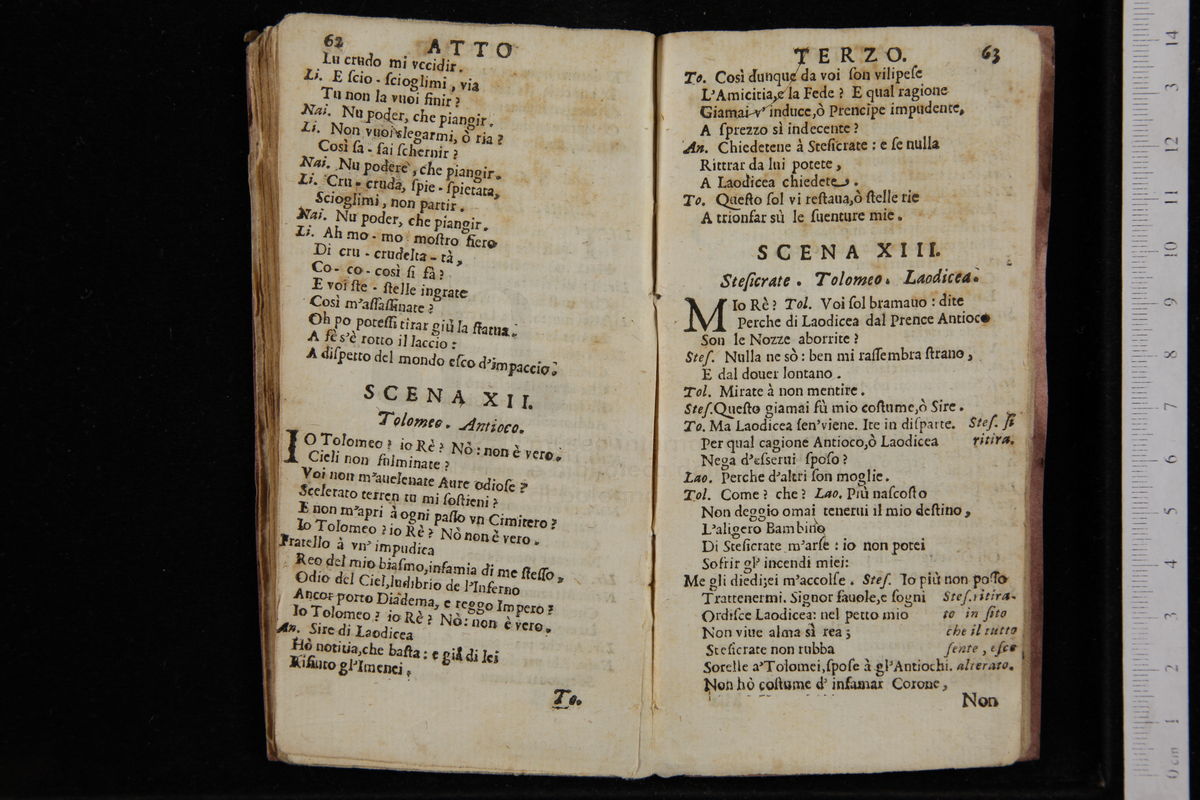 62 ATTO
Lu crudo mi vccidir.
Li. E ſcio - ſcioglimi, via
Tu non la vuoi finir?
Nai. Nu poder, che piangir.
Li. Non vuoi slegarmi, ò ria?
Così ſa - ſai ſchernir?
Nai. Nu podere, che piangir.
Li. Cru - cruda, ſpie - ſpietata,
Scioglimi, non partir.
Nai. Nu poder, che piangir.
Li. Ah mo - mo moſtro fiero
Di cru - crudelta - tà,
Co - co - così ſi fà?
E voi ſte - ſtelle ingrate
Così m'aſſaſſinate?
Oh po poteſſi tirar giù la ſtatua.
A fè s'è rotto il laccio:
A diſpetto del mondo eſco d'impaccio.
SCENA XII.
Tolomeo. Antioco.
IO Tolomeo? io Rè? Nò: non è vero.
Cieli non fulminate?
Voi non m'auelenate Aure odioſe?
Scelerato terren tu mi ſoſtieni?
E non m'apri à ogni paſſo vn Cimitero?
Io Tolomeo? io Rè? Nò non è vero.
Fratello à vn' impudica
Reo del mio biaſmo, infamia di me ſteſſo,
Odio del Ciel, ludibrio de l'Inferno
Ancor porto Diadema, e reggo Impero?
Io Tolomeo? io Rè? Nò: non è vero.
An. Sire di Laodicea
Hò notitia, che baſta: e già di lei
Rifiuto gl'Imenei.
To.
TERZO. 63
To. Così dunque da voi ſon vilipeſe
L'Amicitia, e la Fede? E qual ragione
Giamai v' induce, ò Prencipe impudente,
A ſprezzo sì indecente?
An. Chiedetene à Steſicrate: e ſe nulla
Rittrar da lui potete,
A Laodicea chiedete.
To. Queſto ſol vi reſtaua, ò ſtelle rie
A trionfar sù le ſuenture mie.
SCENA XIII.
Steſicrate. Tolomeo. Laodicea.
MIo Rè? Tol. Voi ſol bramauo: dite
Perche di Laodicea dal Prence Antioco
Son le Nozze aborrite?
Steſ. Nulla ne sò: ben mi raſſembra ſtrano,
E dal douer lontano.
Tol. Mirate à non mentire.
Steſ. Queſto giamai fù mio coſtume, ò Sire.
To. Ma Laodicea ſen'viene. Ite in diſparte. Steſ. ſi
Per qual cagione Antioco, ò Laodicea ritira.
Nega d'eſſerui ſpoſo?
Lao. Perche d'altri ſon moglie.
Tol. Come? che? Lao. Più naſcoſto
Non deggio omai tenerui il mio deſtino,
L'aligero Bambino
Di Steſicrate m'arſe: io non potei
Sofrir gl' incendi miei:
Me gli diedi; ei m'accolſe. Steſ. Io più non poſſo
Trattenermi. Signor fauole, e ſogni Steſ. ritira-
Ordiſce Laodicea: nel petto mio to in ſito
Non viue alma sì rea; che il tutto
Steſicrate non rubba ſente, eſce
Sorelle a'Tolomei, ſpoſe à gl'Antiochi. alterato.
Non hò coſtume d' infamar Corone,
Non